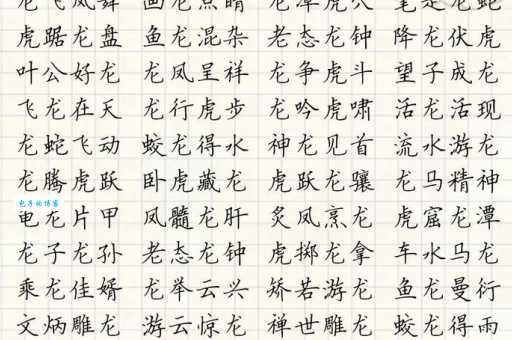 龙飞凤舞 画龙点睛 龙潭虎穴 笔走龙蛇
虎踞龙盘 鱼龙混杂 老态龙钟 降龙伏虎
叶公好龙 龙凤呈祥 龙争虎斗 望子成龙
飞龙在天 龙行虎步 龙吟虎啸 活龙活现
龙蛇飞动 蛟龙得水 神龙见首 流水游龙
龙腾虎跃 卧虎藏龙 虎跃龙骧 龙马精神
包子的博客
龙片甲 凤髓龙肝 炙凤烹龙 虎窟龙潭
龙子龙孙 老态龙钟 虎掷龙拿 车水马龙
乘龙佳婿 龙举云兴 矫若游龙 鱼龙曼衍
文炳雕龙 游云惊龙 禅世雕龙 蛟龙得雨